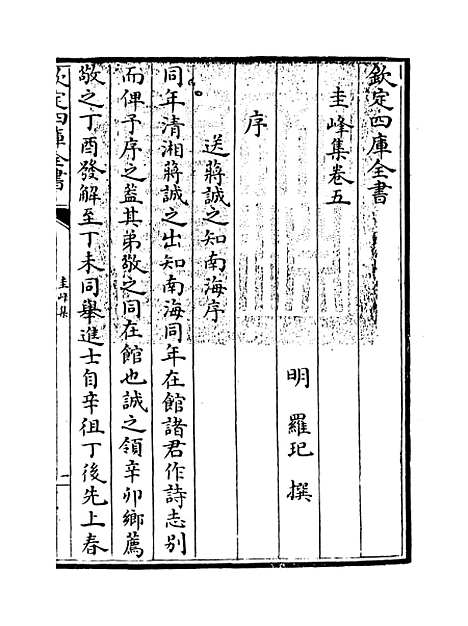 欽定四庫全書
圭峰集卷五
明 羅玘 撰
序
送蔣誠之知南海序
同年清湘蔣誠之出知南海同年在館諸君作詩志别
而俾予序之蓋其弟敬之同在館也誠之領辛卯鄉薦
敬之丁酉發解至丁未同舉進士自辛徂丁後先上春
欽定四庫全書
圭峰集
一